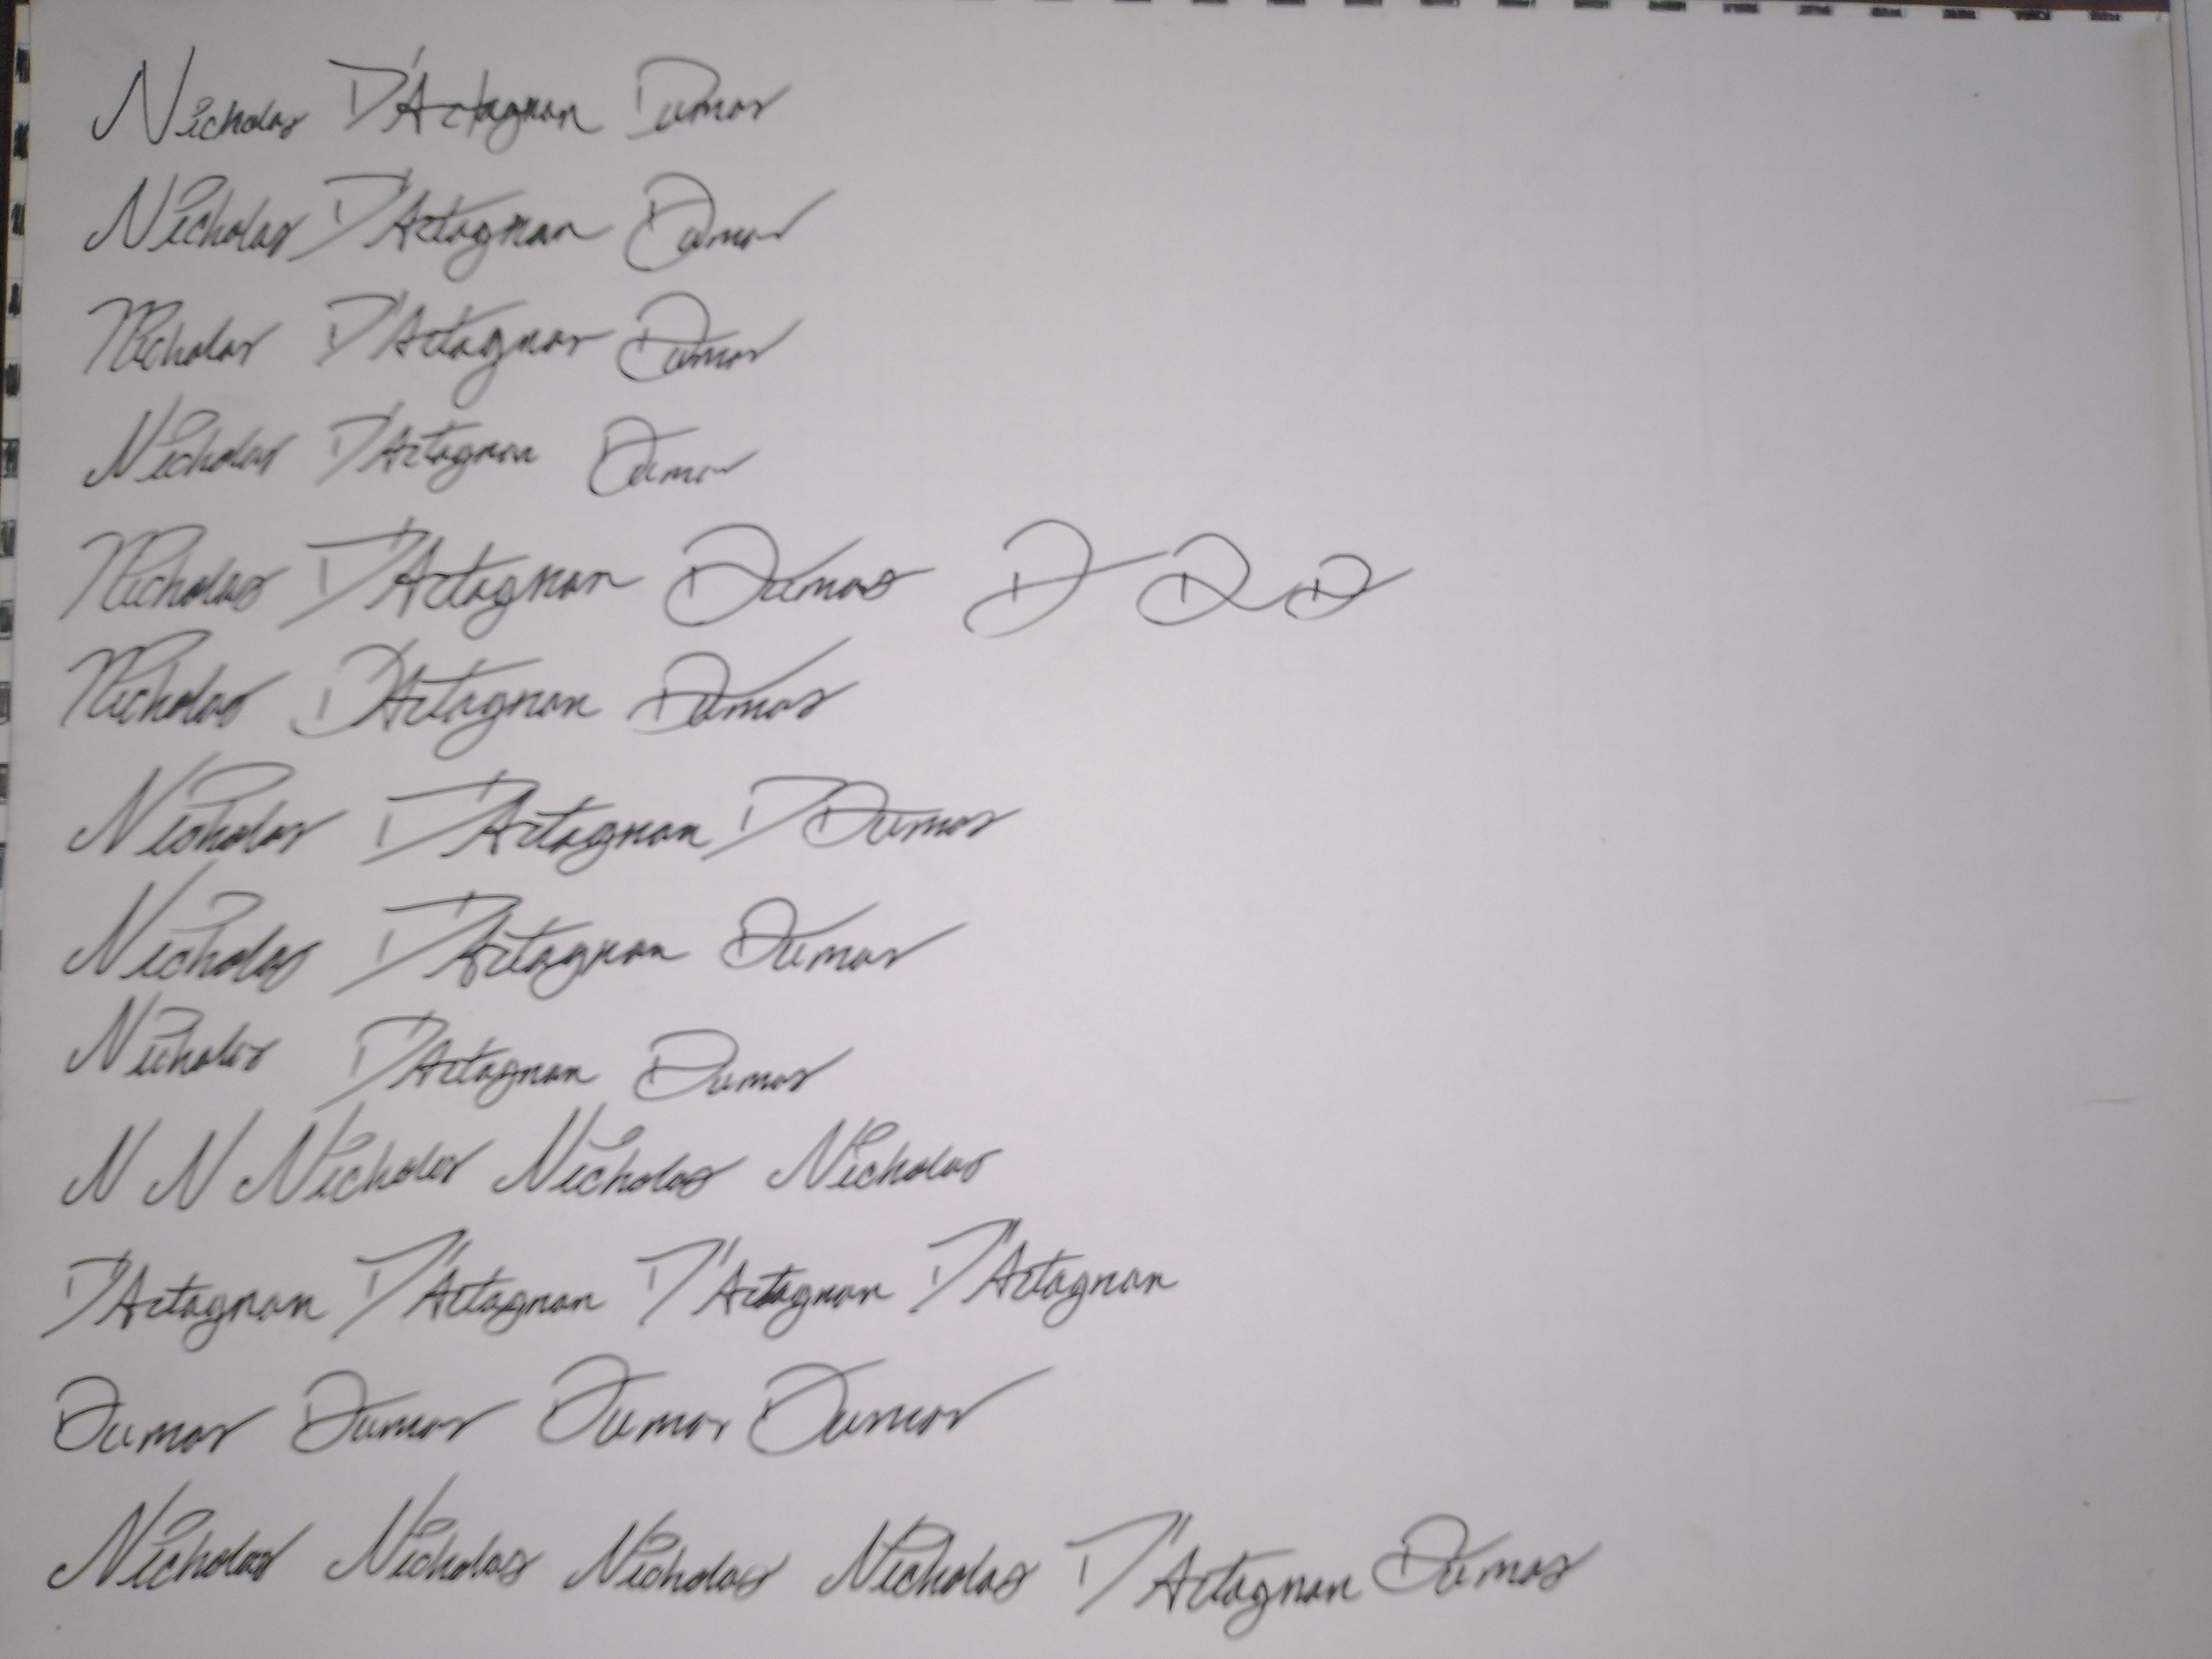 Nicholas D'Artagnan Dumas
Nicholas D'Artagnan Dumas
Nicholas D'Artagnan Dumas
Nicholas D'Artagnan Dumas
Nicholas D'Artagnan Dumas D D D
Nicholas D'Artagnan Dumas
Nicholas D'Artagnan D Dumas
Nicholas D'Artagnan Dumas
Nicholas D'Artagnan Dumas
N N Nicholas Nicholas Nicholas
D'Artagnan D'Artagnan D'Artagnan D'Artagnan
Dumas Dumas Dumas Dumas
Nicholas Nicholas Nicholas Nicholas D'Artagnan Dumas